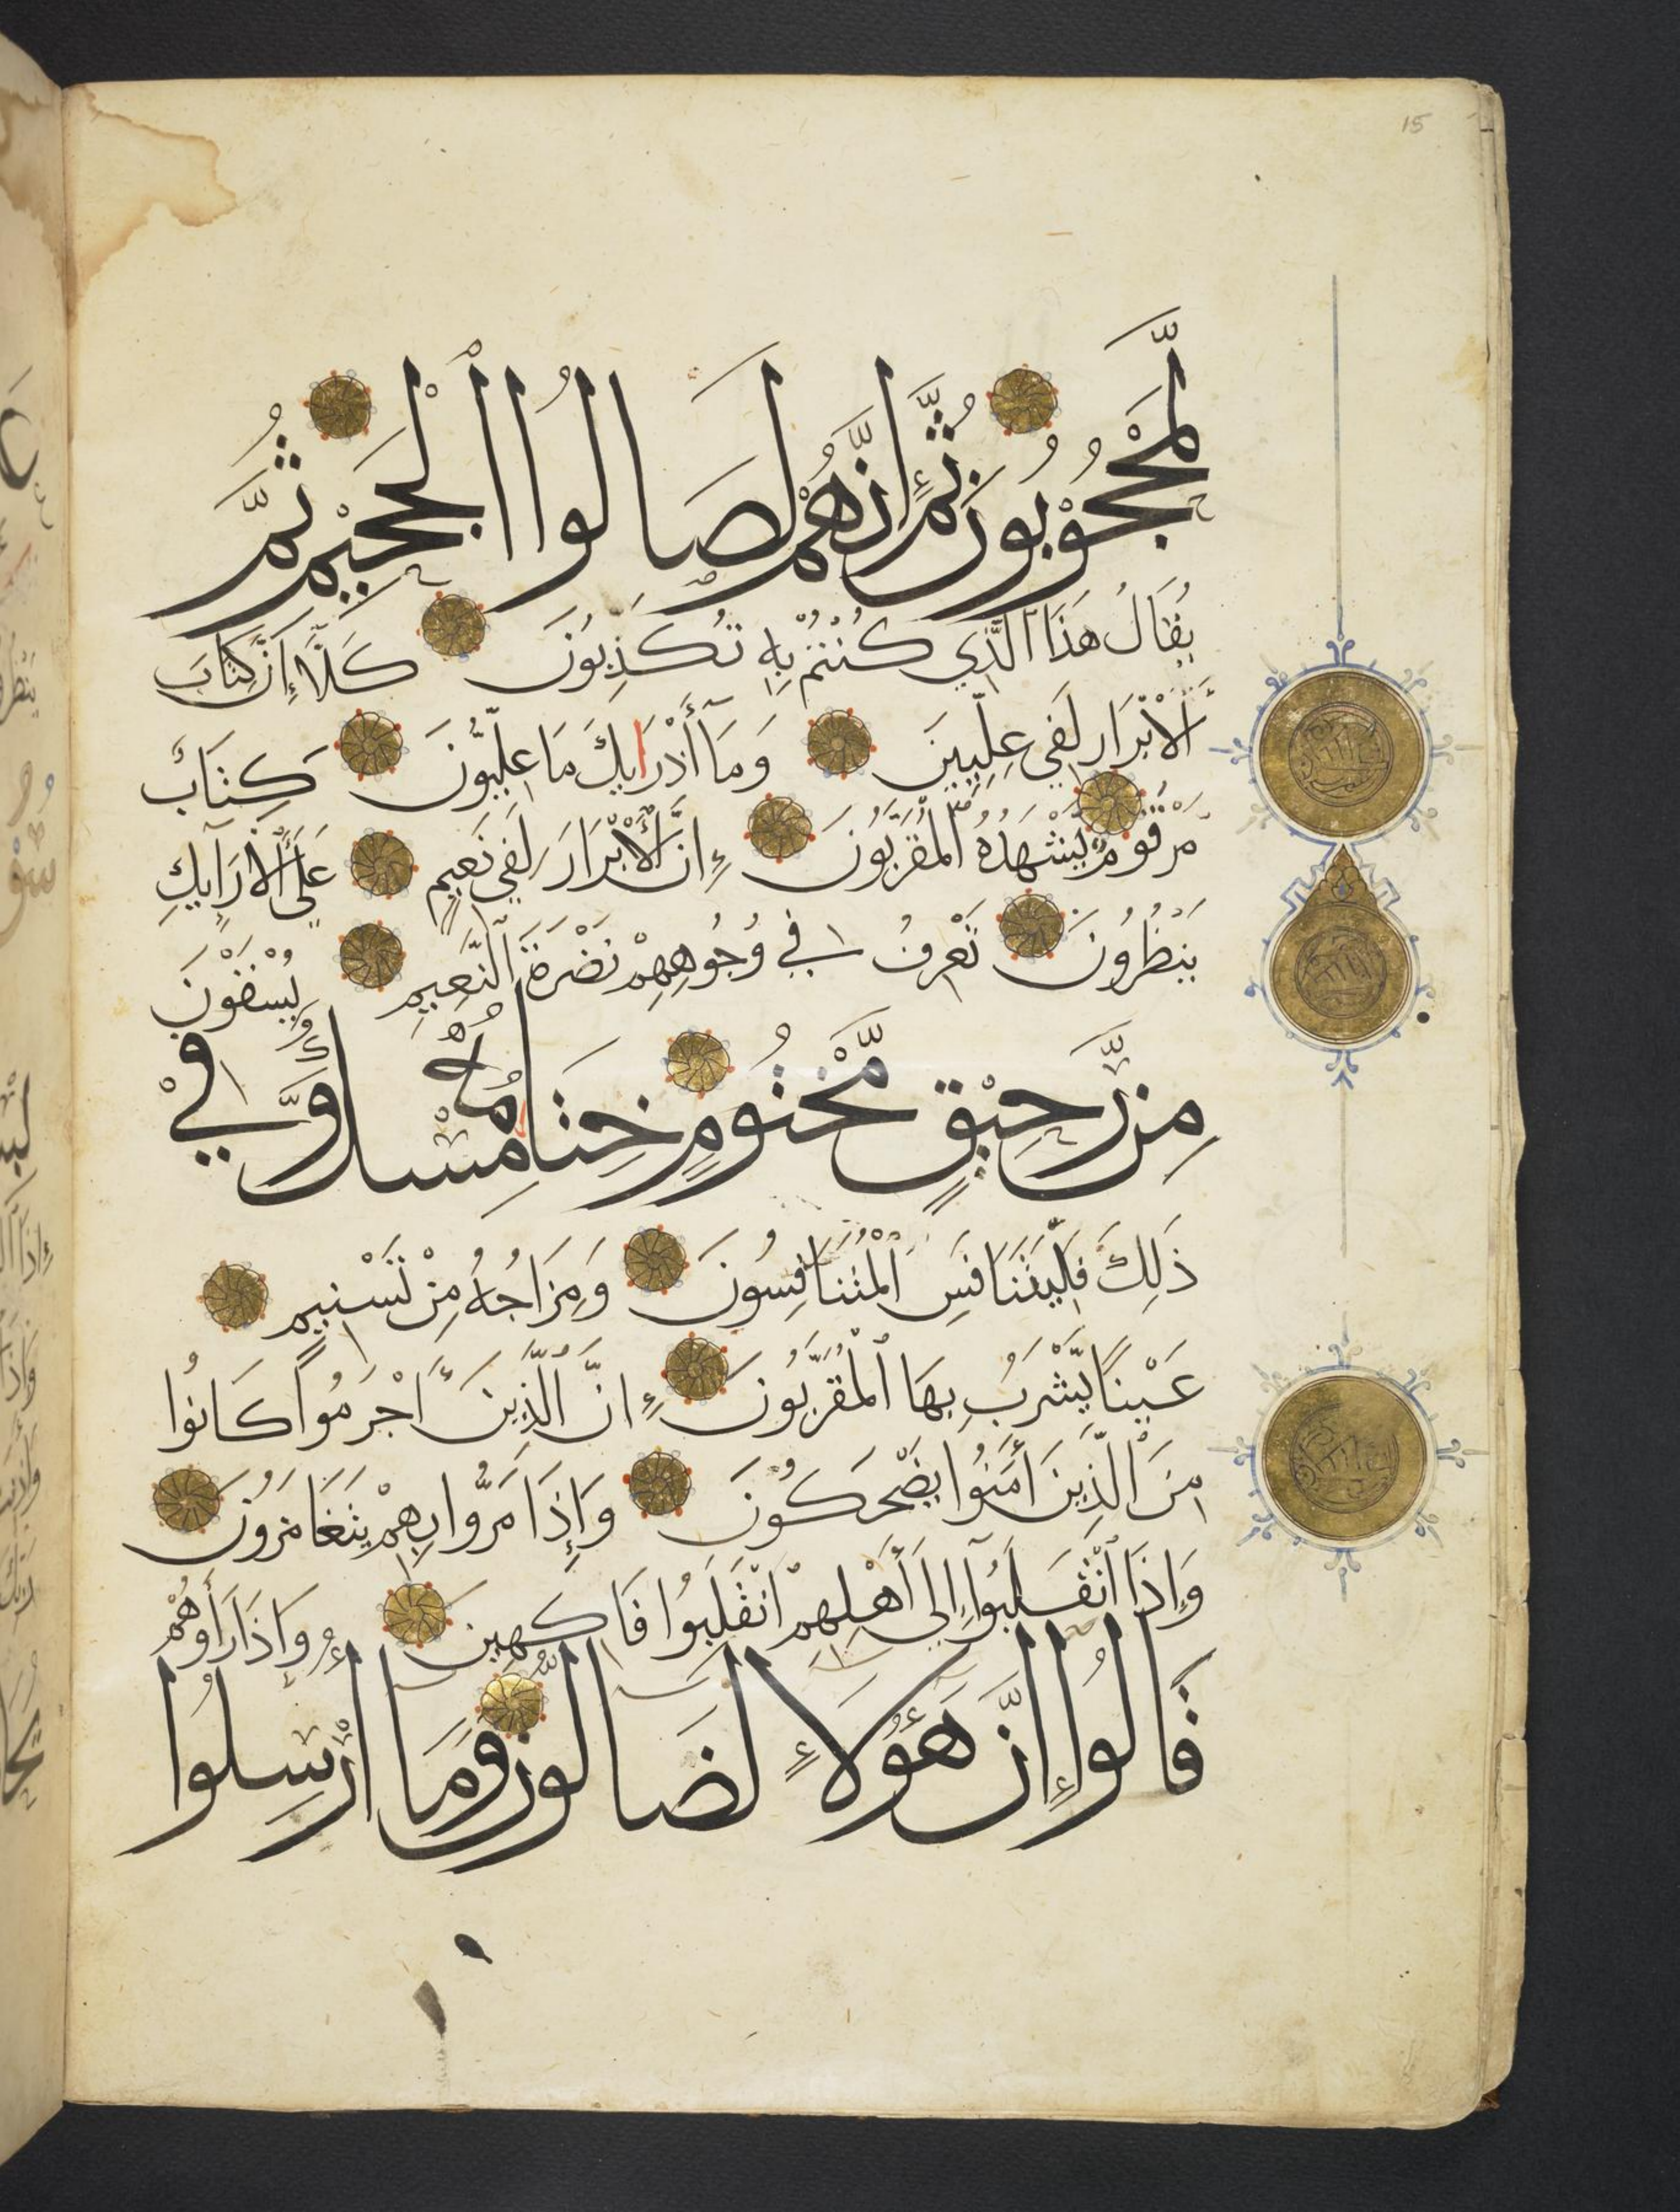 15
لَّمَحْجُوْبُونَ ثُمَّ إِنَّهُمْ لَصَالُوا الْجَحِيْمِ ثُمَّ
يُقَالُ هَذَا الَّذِي كُنْتُمْ بِهِ تُكَذِّبُونَ كَلَّا إِنَّ كِتَابَ
الْأَبْرَارِ لَفِي عِلِّيِّينَ وَمَا أَدْرَايكَ مَا عِلِّيُّونَ كِتَابٌ
مَرْقُومٌ يَّشْهَدُهُ الْمُقَرَّبُونَ إِنَّ الْأَبْرَارَ لَفِي نَعِيمٍ عَلَى الْأَرَآيِكِ
يَنْظُرُونَ تَعْرِفُ فِي وُجُوهِهِمْ نَضْرَةَ النَّعِيمِ يُسْقَوْنَ
مِن رَّحِيْقٍ مَّخْتُومٍ خِتَامُهُ مِسْكٌ وَّفِيْ
ذَلِكَ فَلْيَتَنَافَسِ الْمُتَنَافِسُونَ وَمِزَاجُهُ مِنْ تَسْنِيمٍ
عَيْنًا يَّشْرَبُ بِهَا الْمُقَرَّبُونَ إِنَّ الَّذِينَ أَجْرَمُوا كَانُوا
مِنَ الَّذِينَ أَمَنُوا يَضْحَكُونَ وَإِذَا مَرُّوا بِهِمْ يَتَغَامَزُونَ
وَإِذَا انْقَلَبُوآ إِلَى أَهْلِهِمُ انْقَلَبُوا فَاكِهِينَ وَإِذَا رَأَوْهُمْ
قَالُوا إِنَّ هَؤُلَاءِ لَضَالُّونَ وَمَا أُرْسِلُوا